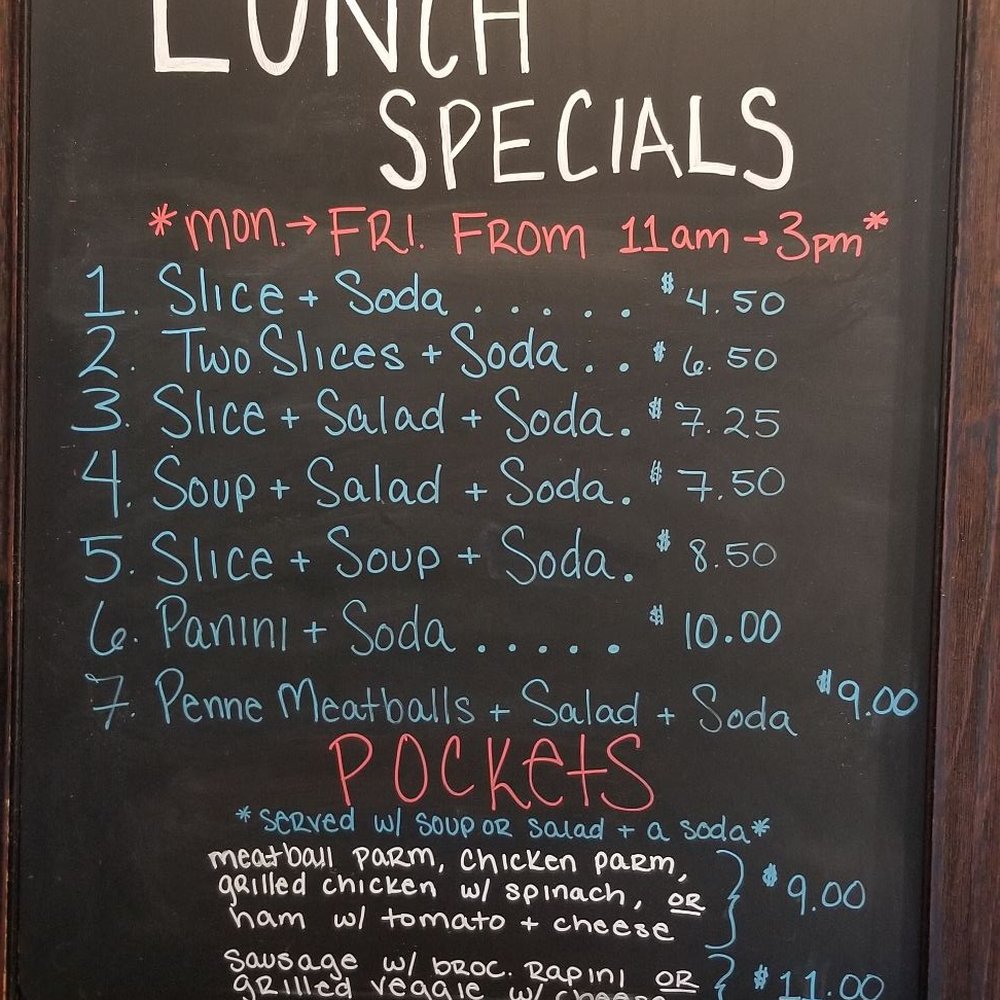 LUNCH
SPECIALS
*MON.→FRI. FROM 11am→3pm*
1. Slice + Soda ...... $4.50
2. Two Slices + Soda .. $6.50
3. Slice + Salad + Soda. $7.25
4. Soup + Salad + Soda. $7.50
5. Slice + Soup + Soda. $8.50
6. Panini + Soda ...... $10.00
7. Penne Meatballs + Salad + Soda $9.00
POCKETS
*SERVED w/ SOUP OR Salad + a soda*
meatball PARM, chicken PARM,
grilled chicken w/ spinach, OR $9.00
ham w/ tomato + cheese
sausage w/ BROC. RAPINI OR $11.00
grilled veggie w/ cheese